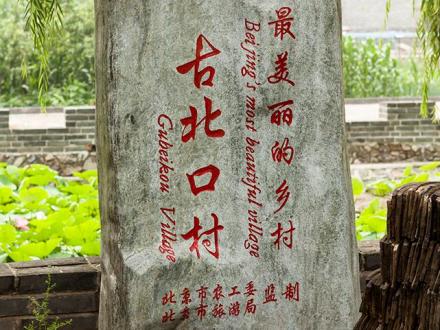 最美丽的乡村
Beijing's most beautiful village
古北口村
Gubeikou Village
北京市农工委 监制
北京市旅游局